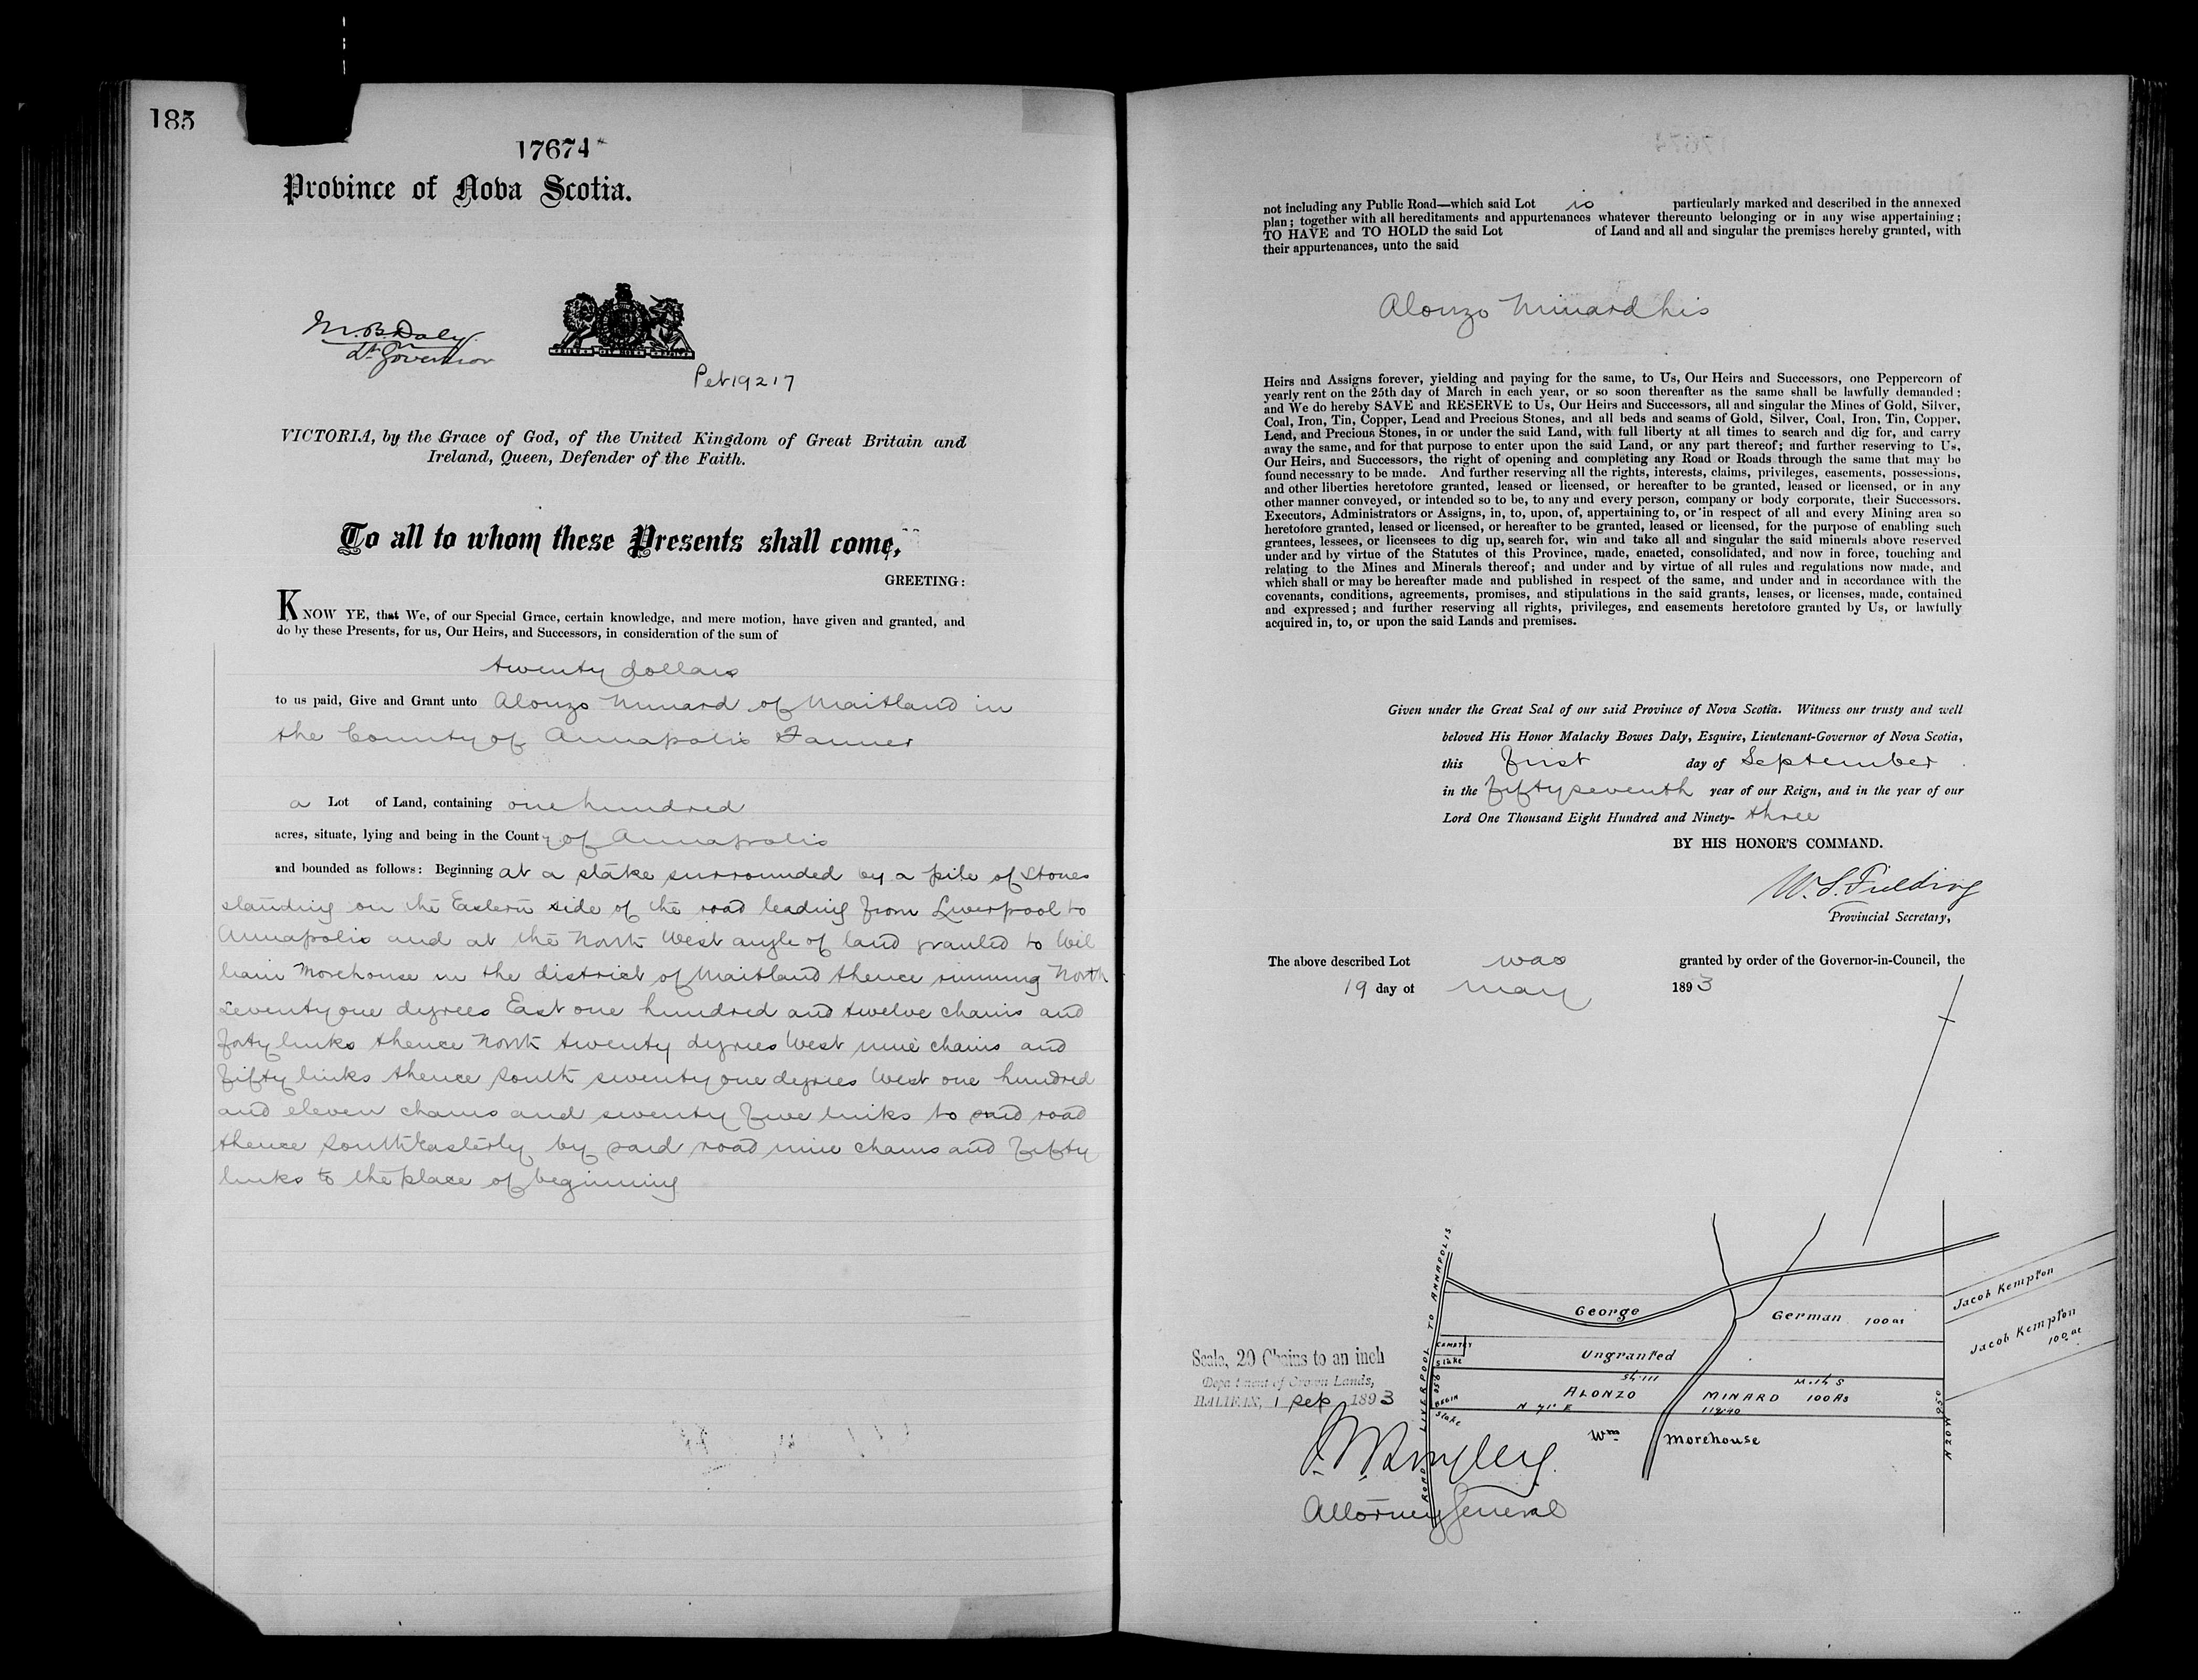 185
17674
Province of Nova Scotia.
M. B. Daly
Lt Governor
Pet 19217
VICTORIA, by the Grace of God, of the United Kingdom of Great Britain and
Ireland, Queen, Defender of the Faith.
To all to whom these Presents shall come,
GREETING:
KNOW YE, that We, of our Special Grace, certain knowledge, and mere motion, have given and granted, and
do by these Presents, for us, Our Heirs, and Successors, in consideration of the sum of
twenty dollars
to us paid, Give and Grant unto Alonzo Minard of Maitland in
the County of Annapolis Farmer
a Lot of Land, containing one hundred
acres, situate, lying and being in the County of Annapolis
and bounded as follows: Beginning at a stake surrounded by a pile of stones
standing on the Eastern side of the road leading from Liverpool to
Annapolis and at the North West angle of land granted to Wil
liam Morehouse in the district of Maitland thence running North
seventy one degrees East one hundred and twelve chains and
forty links thence North twenty degrees West nine chains and
fifty links thence South seventy one degrees West one hundred
and eleven chains and seventy five links to said road
thence South Easterly by said road nine chains and fifty
links to the place of beginning
not including any Public Road—which said Lot is particularly marked and described in the annexed
plan; together with all hereditaments and appurtenances whatever thereunto belonging or in any wise appertaining;
TO HAVE and TO HOLD the said Lot of Land and all and singular the premises hereby granted, with
their appurtenances, unto the said
Alonzo Minard his
Heirs and Assigns forever, yielding and paying for the same, to Us, Our Heirs and Successors, one Peppercorn of
yearly rent on the 25th day of March in each year, or so soon thereafter as the same shall be lawfully demanded:
and We do hereby SAVE and RESERVE to Us, Our Heirs and Successors, all and singular the Mines of Gold, Silver,
Coal, Iron, Tin, Copper, Lead and Precious Stones, and all beds and seams of Gold, Silver, Coal, Iron, Tin, Copper,
Lead, and Precious Stones, in or under the said Land, with full liberty at all times to search and dig for, and carry
away the same, and for that purpose to enter upon the said Land, or any part thereof; and further reserving to Us,
Our Heirs, and Successors, the right of opening and completing any Road or Roads through the same that may be
found necessary to be made. And further reserving all the rights, interests, claims, privileges, easements, possessions,
and other liberties heretofore granted, leased or licensed, or hereafter to be granted, leased or licensed, or in any
other manner conveyed, or intended so to be, to any and every person, company or body corporate, their Successors,
Executors, Administrators or Assigns, in, to, upon, of, appertaining to, or in respect of all and every Mining area so
heretofore granted, leased or licensed, or hereafter to be granted, leased or licensed, for the purpose of enabling such
grantees, lessees, or licensees to dig up, search for, win and take all and singular the said minerals above reserved
under and by virtue of the Statutes of this Province, made, enacted, consolidated, and now in force, touching and
relating to the Mines and Minerals thereof; and under and by virtue of all rules and regulations now made, and
which shall or may be hereafter made and published in respect of the same, and under and in accordance with the
covenants, conditions, agreements, promises, and stipulations in the said grants, leases, or licenses, made, contained
and expressed; and further reserving all rights, privileges, and easements heretofore granted by Us, or lawfully
acquired in, to, or upon the said Lands and premises.
Given under the Great Seal of our said Province of Nova Scotia. Witness our trusty and well
beloved His Honor Malachy Bowes Daly, Esquire, Lieutenant-Governor of Nova Scotia,
this First day of September
in the Fifty seventh year of our Reign, and in the year of our
Lord One Thousand Eight Hundred and Ninety-three
BY HIS HONOR'S COMMAND.
W. S. Fielding
Provincial Secretary,
The above described Lot was granted by order of the Governor-in-Council, the
19 day of May 1893
ROAD LIVERPOOL TO ANNAPOLIS
George German 100 ac
Jacob Kempton
Jacob Kempton
100 ac
CEMETRY
Stake
Ungranted
Scale, 20 Chains to an inch
Department of Crown Lands,
HALIFAX, 1 Sep 1893
950
BEGIN
Stake
ALONZO MINARD 100 As
N 71° E 112.40
N 20 W 950
Wm Morehouse
J. W. Longley
Attorney General